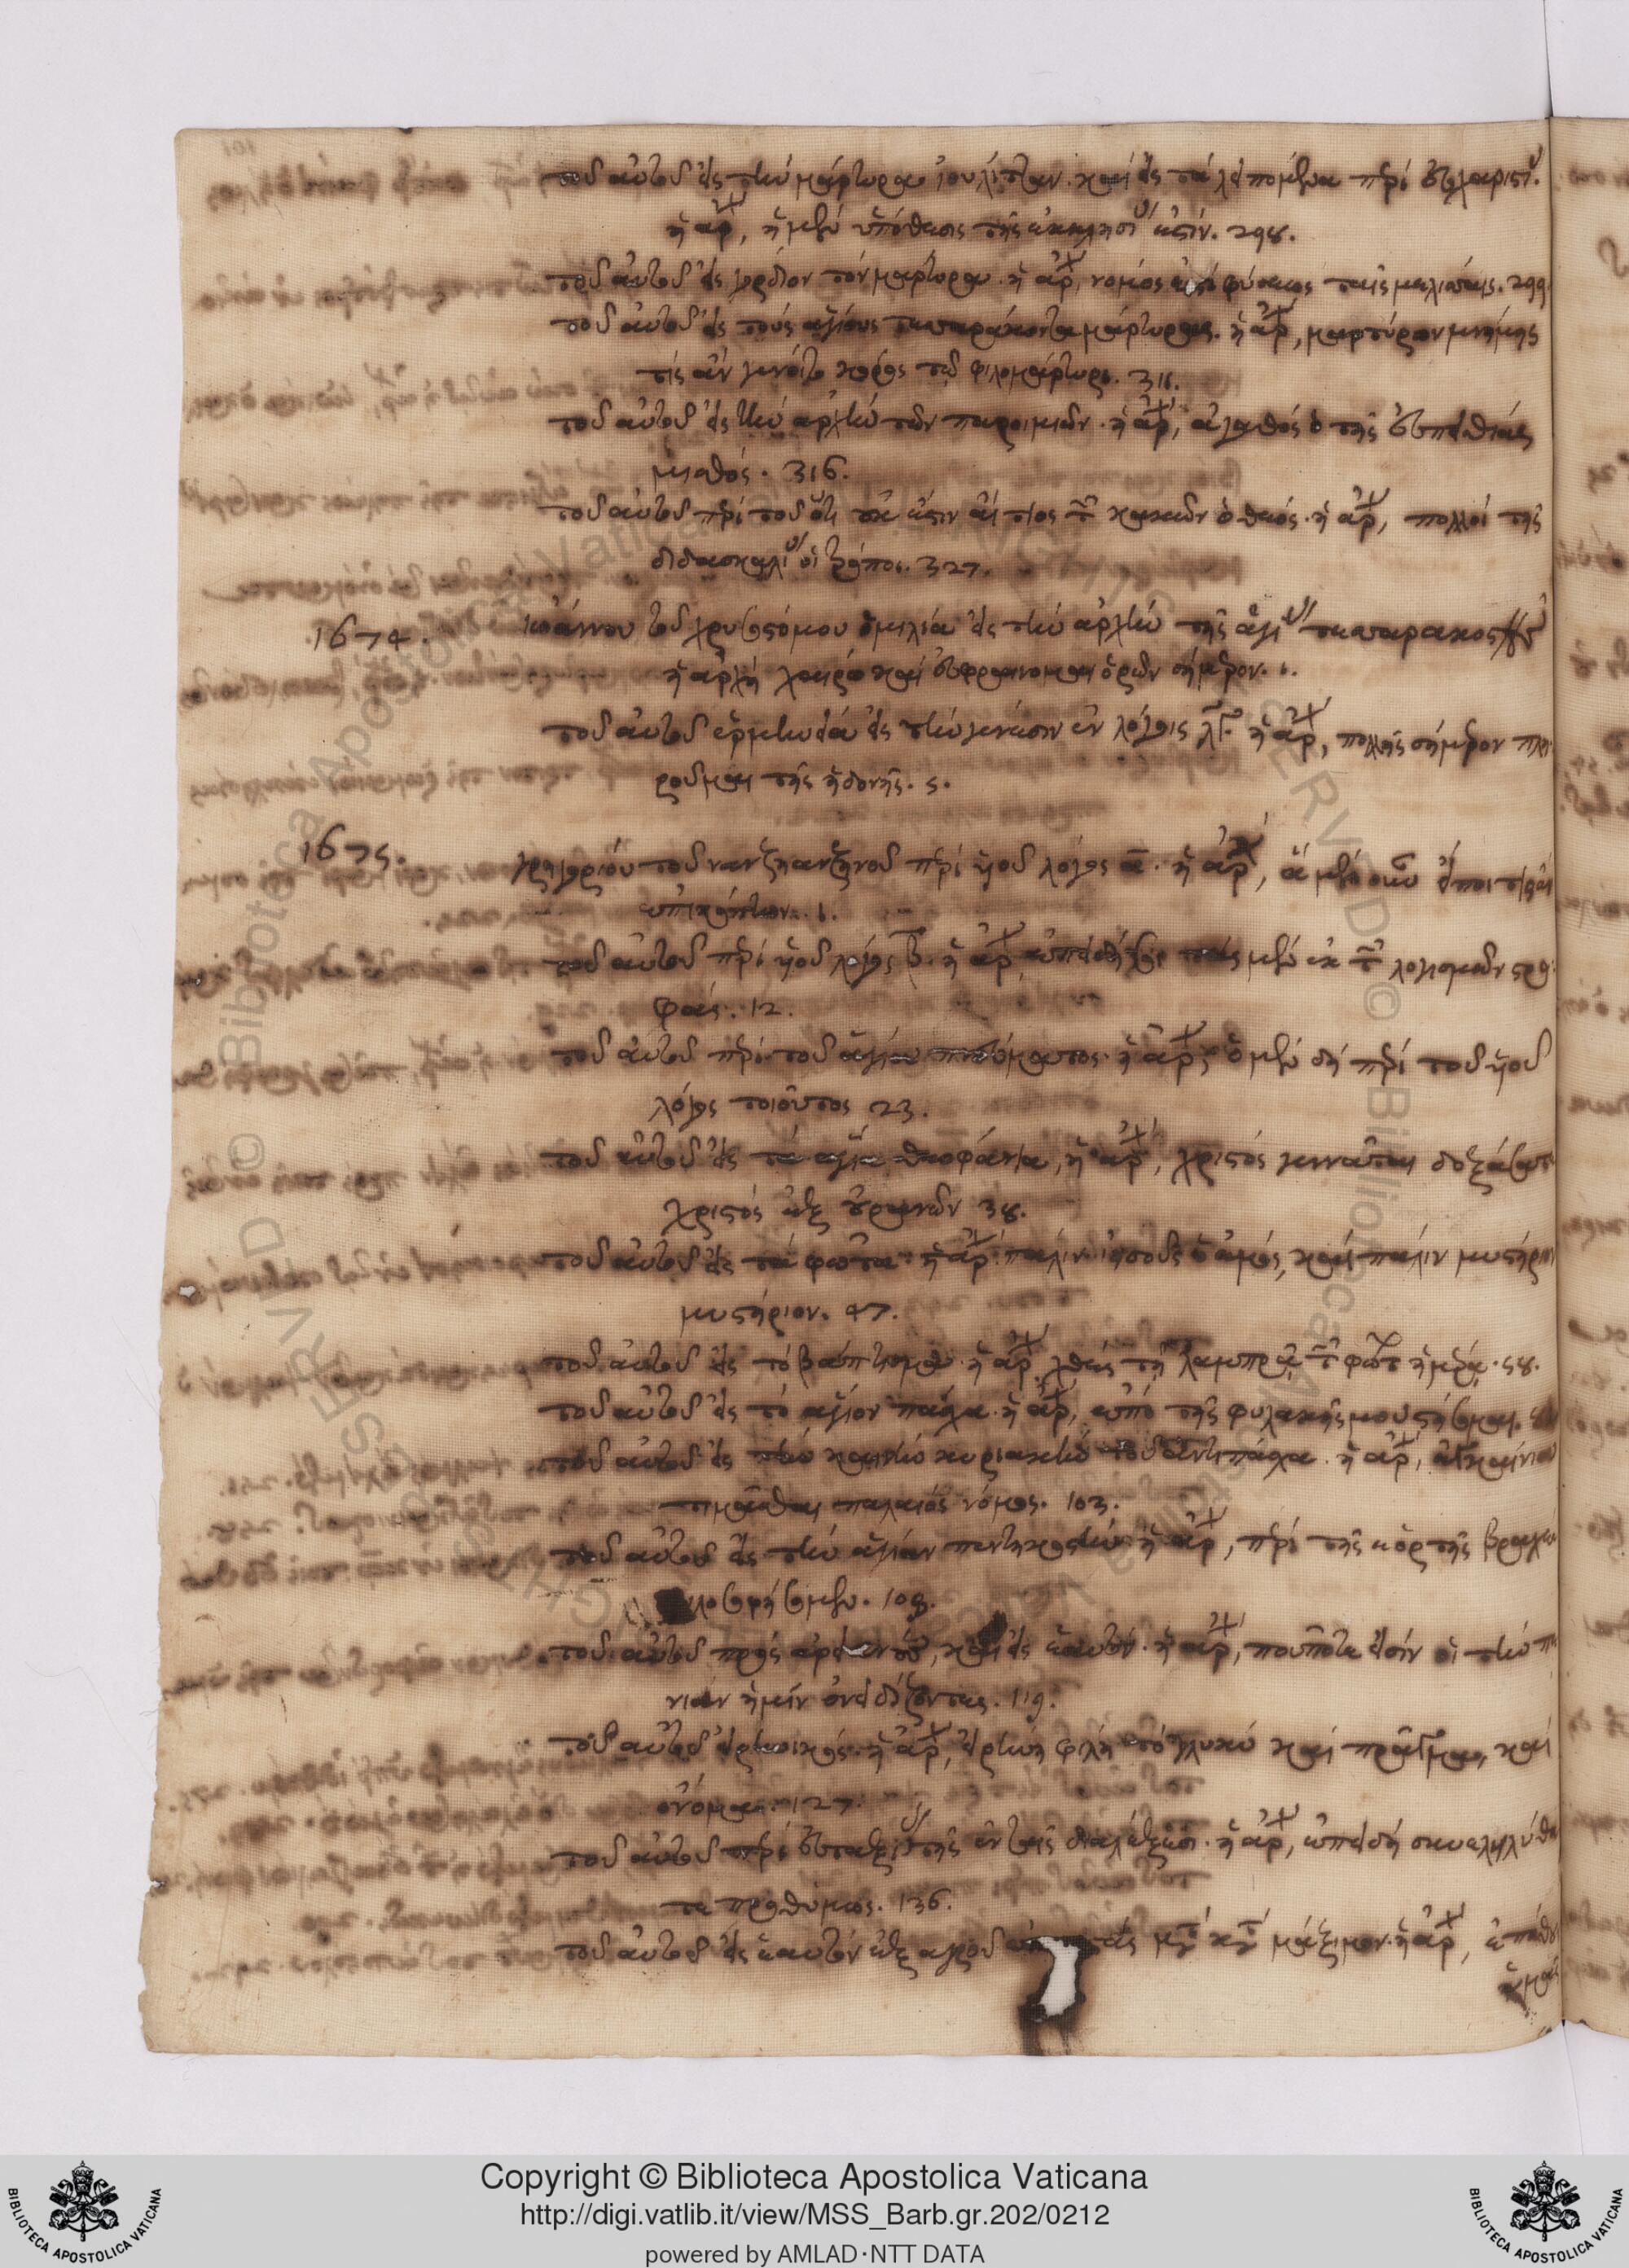 τοῦ αὐτοῦ εἰς τὴν μάρτυρα ἰουλίτταν. καὶ εἰς τὰ λειπόμενα περὶ εὐχαριστί.
ἡ ἀρχ, ἡ μὲν ὑπόθεσις τῆς ἐκκλησί ἐστίν. 298.
τοῦ αὐτοῦ εἰς γόρδιον τὸν μάρτυρα. ἡ ἀρχ, νομός ἐστι φύσεως ταῖς μελίσσαις. 299.
τοῦ αὐτοῦ εἰς τοὺς ἁγίους τεσσαράκοντα μάρτυρας. ἡ ἀρχ, μαρτύρων μνήμης
τίς ἂν γένοιτο κόρος τῷ φιλομάρτυρι. 311.
τοῦ αὐτοῦ εἰς τὴν ἀρχὴν τῶν παροιμιῶν. ἡ ἀρχ, ἀγαθὸς ὁ τῆς εὐπειθείας
μισθός. 316.
τοῦ αὐτοῦ περὶ τοῦ ὅτι οὐκ ἔστιν αἴτιος τῶν κακῶν ὁ θεός. ἡ ἀρχ, πολλοὶ τῆς
διδασκαλί οἱ τρόποι. 327.
1674. ἰωάννου τοῦ χρυσοστόμου ὁμιλία εἰς τὴν ἀρχὴν τῆς ἁγί τεσσαρακοστῆς
ἡ ἀρχὴ χαίρω καὶ εὐφραίνομαι ὁρῶν σήμερον. 1.
τοῦ αὐτοῦ ἑρμηνεία εἰς τὴν γένεσιν ἐν λόγοις λγ. ἡ ἀρχ, πολλῆς σήμερον πλη
ροῦμαι τῆς ἡδονῆς. 5.
1675. γρηγορίου τοῦ ναζιανζηνοῦ περὶ υἱοῦ λόγος α. ἡ ἀρχ, ἃ μὲν οὖν εἴποι τις ἂν
ἐπικόπτων. 1.
τοῦ αὐτοῦ περὶ υἱοῦ λόγος β. ἡ ἀρχ ἐπειδή σοι τὰς μὲν ἐκ τῶν λογισμῶν στρο
φάς. 12.
τοῦ αὐτοῦ περὶ τοῦ ἁγίου πνεύματος. ἡ ἀρχ, ὁ μὲν δὴ περὶ τοῦ υἱοῦ
λόγος τοιοῦτος 23.
τοῦ αὐτοῦ εἰς τὰ ἅγια θεοφάνια, ἡ ἀρχ, χριστὸς γεννᾶται δοξάσατε
χριστὸς ἐξ οὐρανῶν 38.
τοῦ αὐτοῦ εἰς τὰ φῶτα. ἡ ἀρχ. πάλιν ἰησοῦς ὁ ἐμός, καὶ πάλιν μυστήριον
μυστήριον. 47.
τοῦ αὐτοῦ εἰς τὸ βάπτισμα. ἡ ἀρχ χθὲς τῇ λαμπρᾷ τῶν φώτ ἡμέρᾳ. 58.
τοῦ αὐτοῦ εἰς τὸ ἅγιον πάσχα. ἡ ἀρχ, ἐπὶ τῆς φυλακῆς μου στήσομαι.
τοῦ αὐτοῦ εἰς τὴν καινὴν κυριακὴν τοῦ ἀντιπάσχα. ἡ ἀρχ, ἐγκαίνια
τιμᾶσθαι παλαιὸς νόμος. 103.
τοῦ αὐτοῦ εἰς τὴν ἁγίαν πεντηκοστήν. ἡ ἀρχ, περὶ τῆς ἑορτῆς βραχέα
λοσοφήσωμεν. 108.
τοῦ αὐτοῦ πρὸς ἀρειανούς, καὶ εἰς ἑαυτόν. ἡ ἀρχ, ποῦ ποτε εἰσὶν οἱ τὴν πε
νίαν ἡμῖν ὀνειδίζοντες. 119.
τοῦ αὐτοῦ εἰρηνικός. ἡ ἀρχ, εἰρήνη φίλη τὸ γλυκὺ καὶ πρᾶγμα, καὶ
ὄνομα. 127.
τοῦ αὐτοῦ περὶ εὐταξί τῆς ἐν ταῖς διαλέξεσι. ἡ ἀρχ, ἐπειδὴ συνεληλύθα
τε προθύμως. 136.
τοῦ αὐτοῦ εἰς ἑαυτὸν ἐξ ἀγροῦ μάξιμον. ἡ ἀρχ, ἐπόθουν
ὑμᾶς